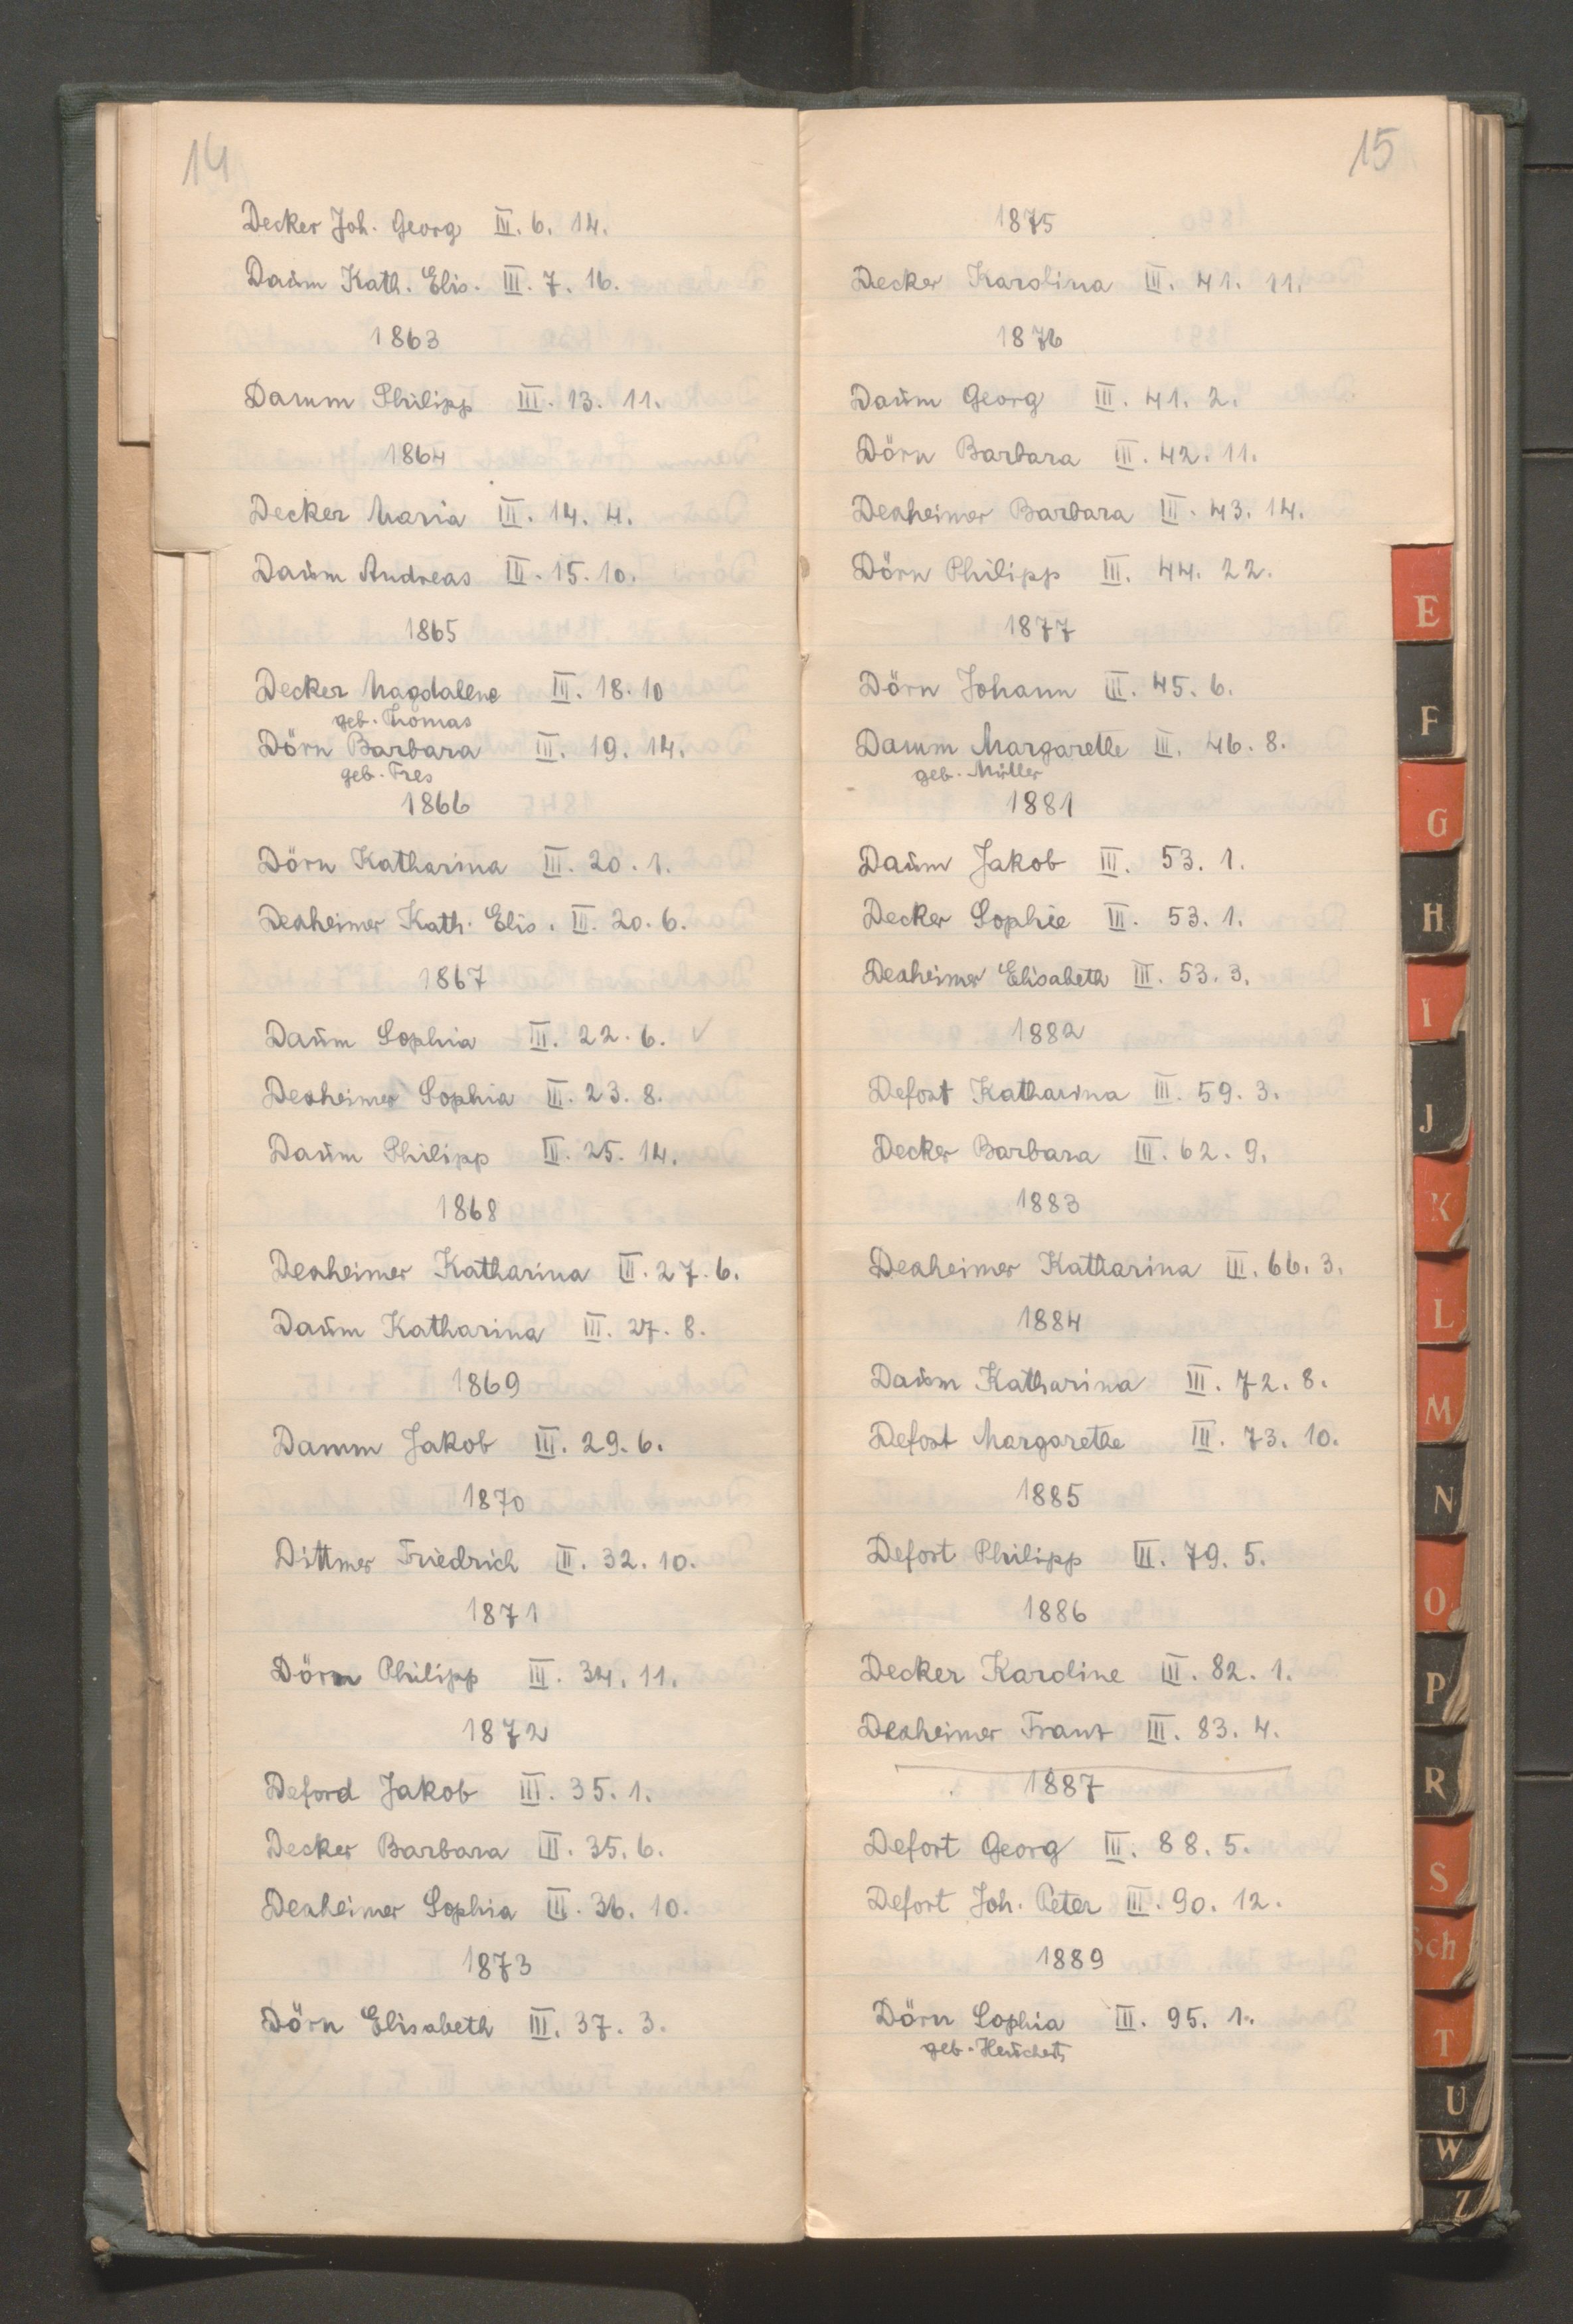 14
Decker Joh. Georg III. 6. 14.
Daum Kath. Elis. III. 7. 16.
1863
Damm Philipp III. 13. 11.
1864
Decker Maria III. 14. 4.
Daum Andreas III. 15. 10.
1865
Decker Magdalene III. 18. 10
geb. Thomas
Dörn Barbara III. 19. 14.
geb. Fres
1866
Dörn Katharina III. 20. 1.
Dexheimer Kath. Elis. III. 20. 6.
1867
Daum Sophia III. 22. 6. √
Dexheimer Sophia III. 23. 8.
Daum Philipp III. 25. 14.
1868
Dexheimer Katharina III. 27. 6.
Daum Katharina III. 27. 8.
1869
Damm Jakob III. 29. 6.
1870
Dittmer Friedrich III. 32. 10.
1871
Dörn Philipp III. 34. 11.
1872
Deford Jakob III. 35. 1.
Decker Barbara III. 35. 6.
Dexheimer Sophia III. 36. 10.
1873
Dörn Elisabeth III. 37. 3.
15
1875
Decker Karolina III. 41. 11.
1876
Daum Georg III. 41. 2.
Dörn Barbara III. 42. 11.
Dexheimer Barbara III. 43. 14.
Dörn Philipp III. 44. 22.
1877
Dörn Johann III. 45. 6.
Damm Margarethe III. 46. 8.
geb. Müller
1881
Daum Jakob III. 53. 1.
Decker Sophie III. 53. 1.
Dexheimer Elisabeth III. 53. 3.
1882
Defort Katharina III. 59. 3.
Decker Barbara III. 62. 9.
1883
Dexheimer Katharina III. 66. 3.
1884
Daum Katharina III. 72. 8.
Defort Margarethe III. 73. 10.
1885
Defort Philipp III. 79. 5.
1886
Decker Karoline III. 82. 1.
Dexheimer Franz III. 83. 4.
1887
Defort Georg III. 88. 5.
Defort Joh. Peter III. 90. 12.
1889
Dörn Sophia III. 95. 1.
geb.
E
F
G
H
I
J
K
L
M
N
O
P
R
S
Sch
T
U
W
Z